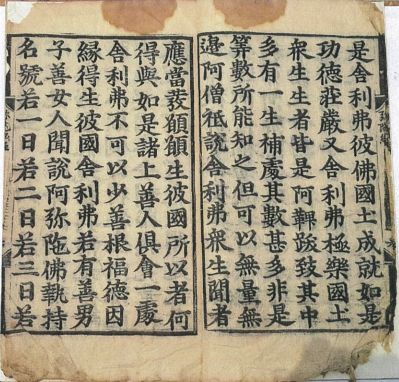 是舍利弗彼佛國土成就如是
功德莊嚴又舍利弗極樂國土
衆生生者皆是阿鞞跋致其中
多有一生補處其數甚多非是
算數所能知之但可以無量無
邊阿僧祇說舍利弗衆生聞者
應當發願願生彼國所以者何
得與如是諸上善人俱會一處
舍利弗不可以少善根福德因
緣得生彼國舍利弗若有善男
子善女人聞說阿弥陁佛執持
名號若一日若二日若三日若